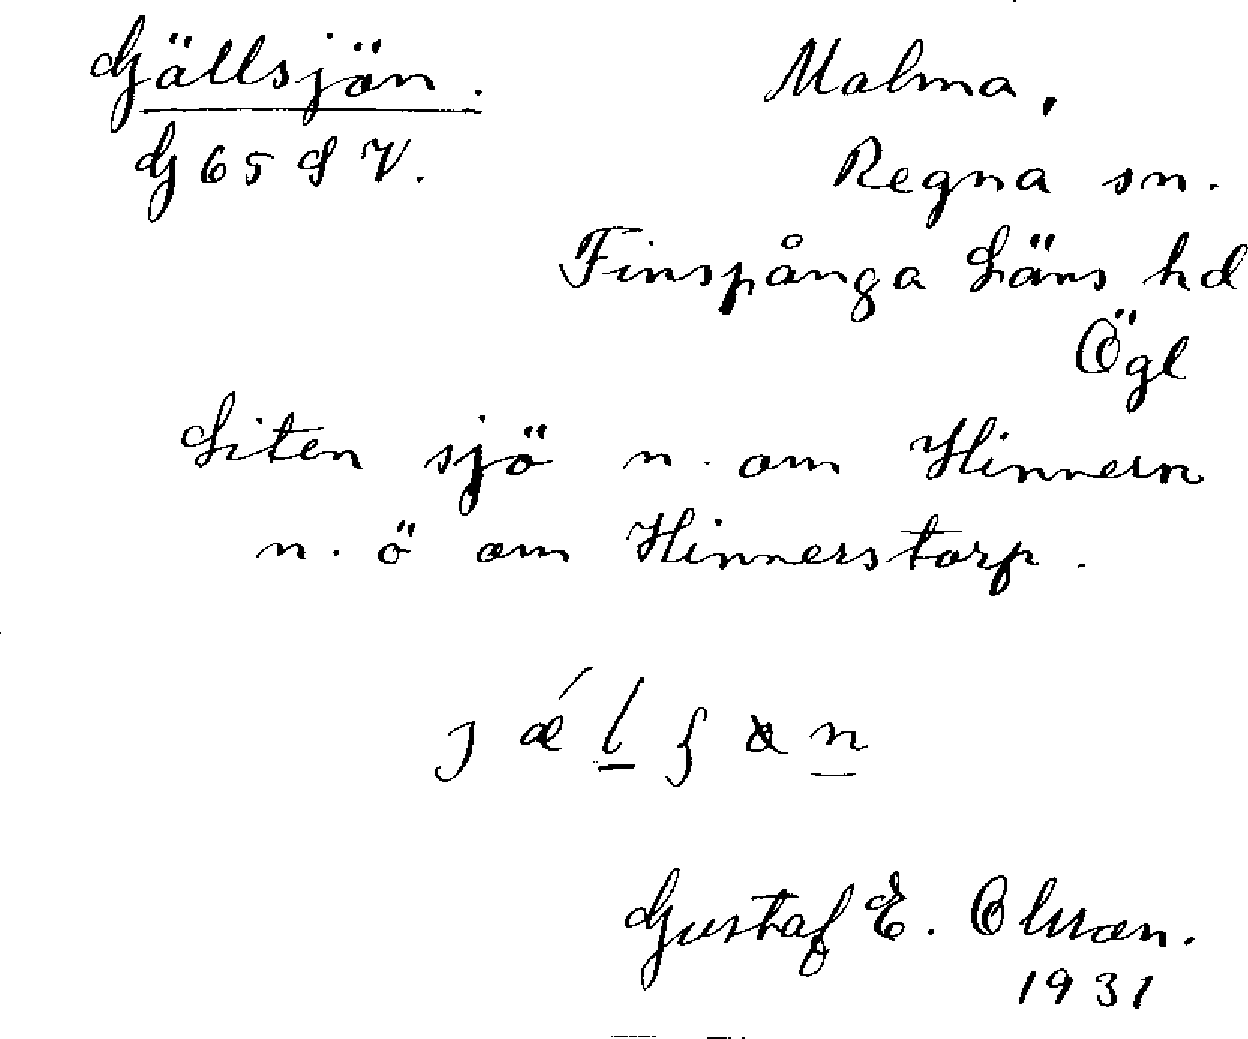 Gjällsjön. Malma,
G 65 S V. Regna sn.
Finspånga Läns hd
Ögl
Liten sjö n. om Hinnern
n. ö om Hinnerstorp.
Gustaf E. Olsson.
1931